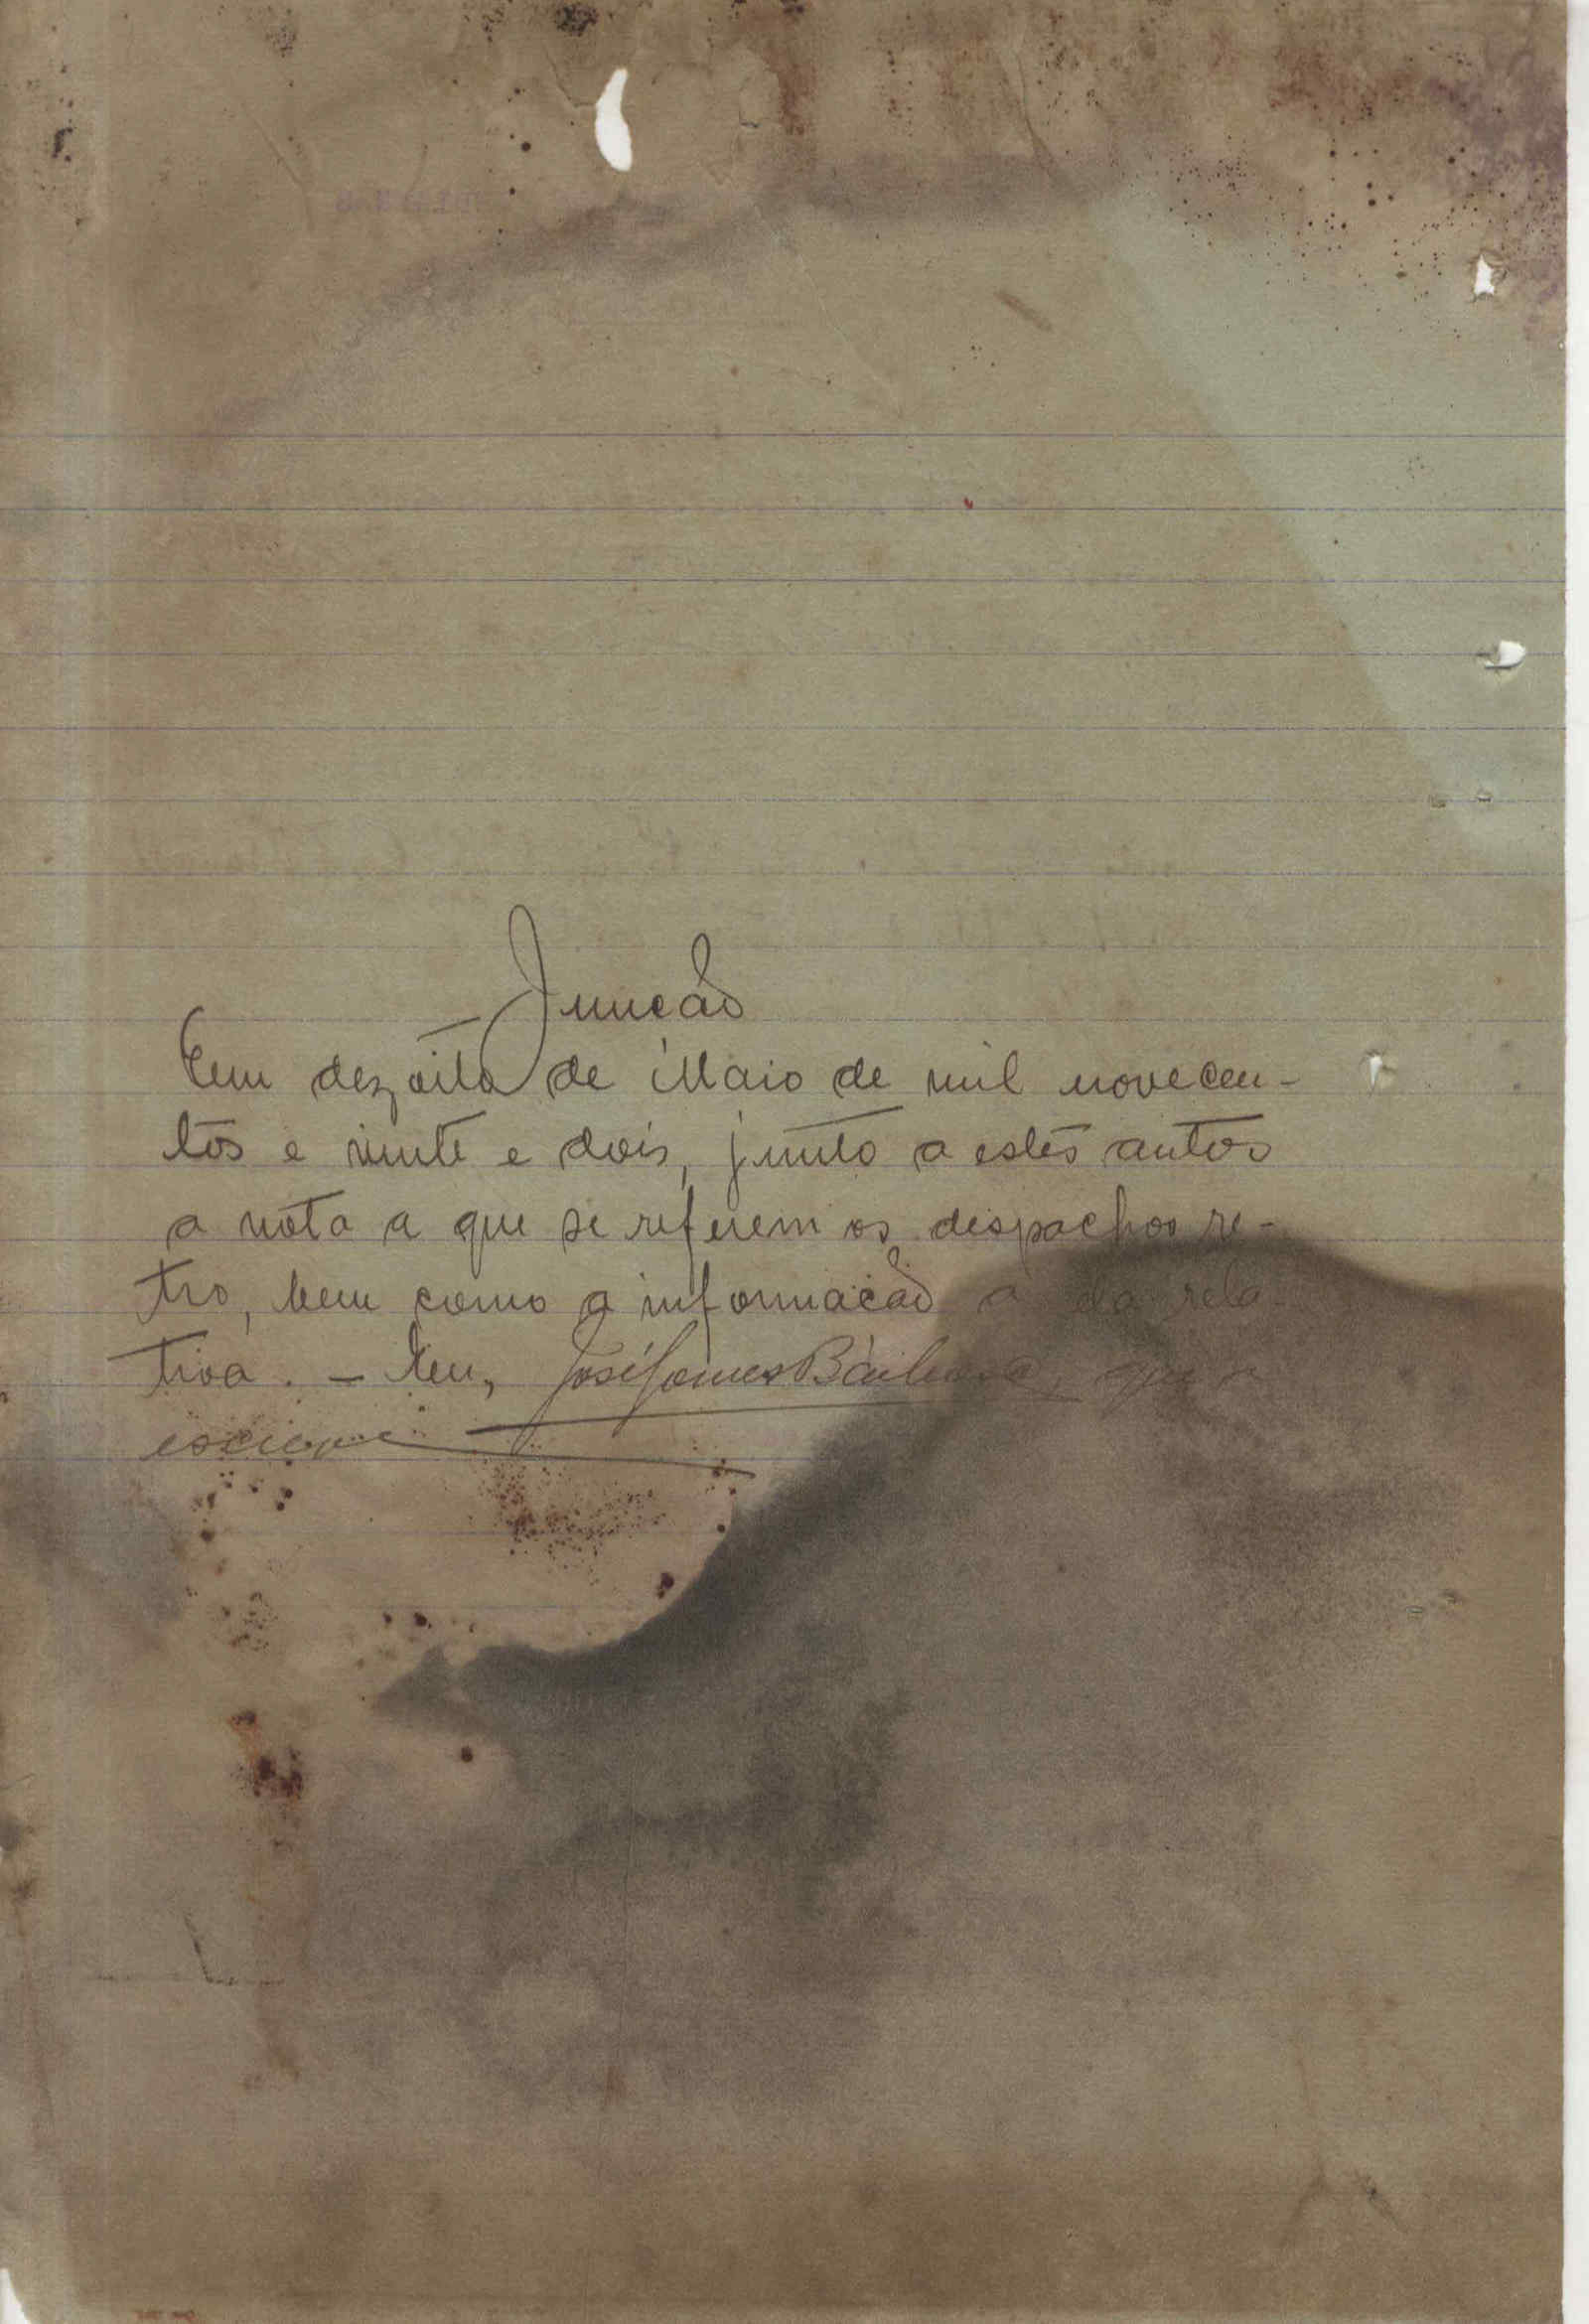 Juncão
Em dezoito de Maio de mil novecen-
tos e vinte e dois, junto a estes autos
a nota a que se referem os despachos re-
tro, bem como a informacão a ela rela-
tiva. — Eu, José Gomes Barbosa, que o
escrevi